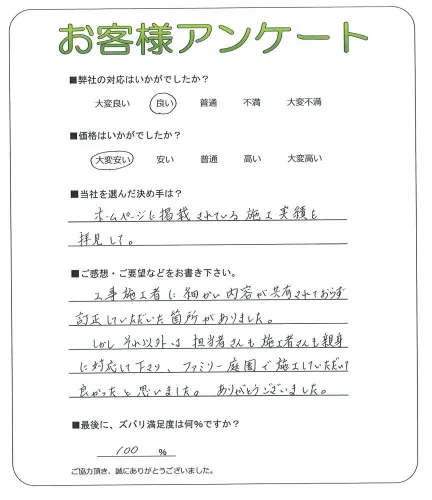 お客様アンケート
■弊社の対応はいかがでしたか？
大変良い 良い 普通 不満 大変不満
■価格はいかがでしたか？
大変安い 安い 普通 高い 大変高い
■当社を選んだ決め手は？
ホームページに掲載されている施工実績を
拝見して。
■ご感想・ご要望などをお書き下さい。
工事施工者に細かい内容が共有されておらず
訂正していただいた箇所がありました。
しかしそれ以外は担当者さんも施工者さんも親身
に対応して下さり、ファミリー庭園で施工していただいて
良かったと思いました。 ありがとうございました。
■最後に、ズバリ満足度は何％ですか？
100 ％
ご協力頂き、誠にありがとうございました。